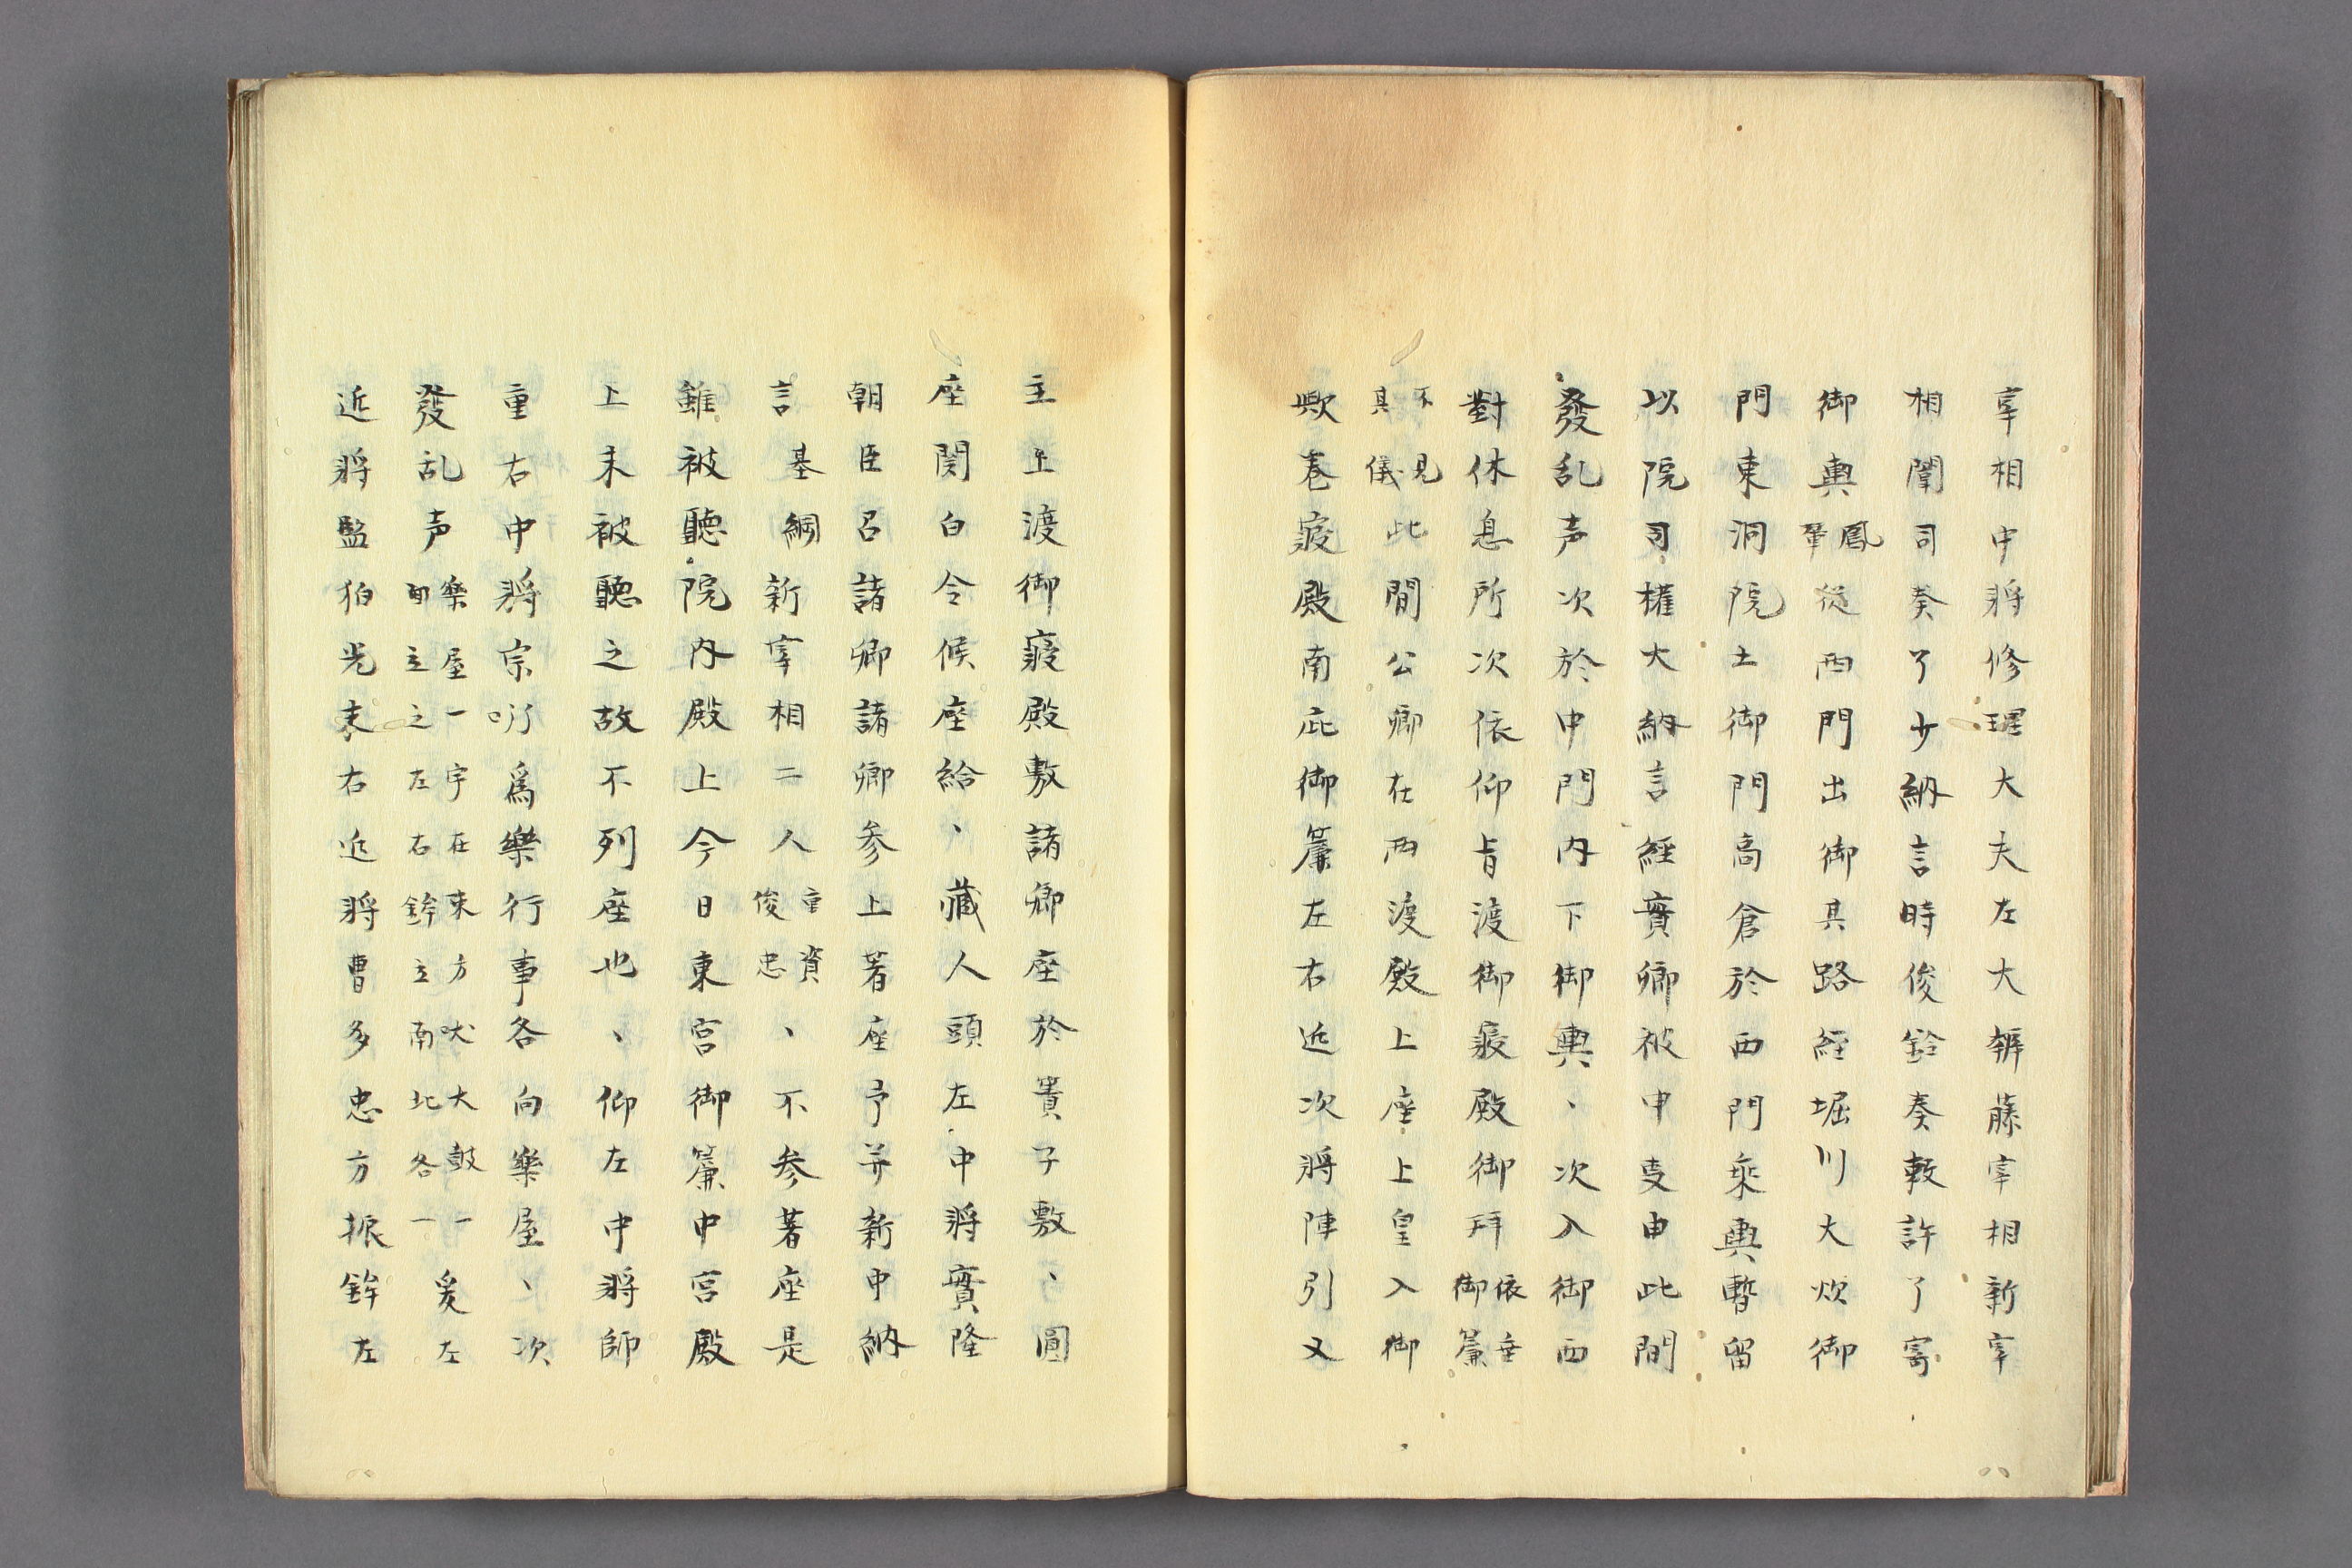 宰相中将修理大夫左大辨藤宰相新宰
相闈司奏了少納言時俊鈴奏敕許了寄
御輿鳳輦従西門出御其路經堀川大炊御
門東洞院土御門高倉於西門乗輿暫留
以院司權大納言經實卿被申事由此間
發乱声次於中門内下御輿、次入御西
對休息所次依仰旨渡御寢殿御拜依垂御簾
不見其儀此間公卿在西渡殿上座上皇入御
歟巻寢殿南庇御簾左右近次将陣引又
主上渡御寢殿敷諸卿座於簀子敷、圓
座関白令候座給、藏人頭左中将實隆
朝臣召諸卿諸卿参上着座予并新中納
言基綱新宰相二人重資俊忠、不参著座是
雖被聽院内殿上今日東宮御簾中宮殿
上未被聽之故不列座也、仰左中将師
重右中将宗衍爲樂行事各向樂屋、次
發乱声樂屋一宇在東方吠大鼓一面立之左右鉾立南北各一爰左
近将監狛光末右近将曹多忠方振鉾左